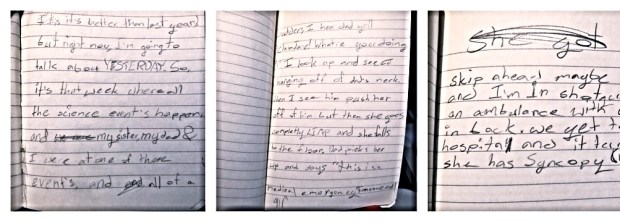 it's it's better than last year)
but right now, I'm going to
talk about YESTERDAY. So,
it's that week where all
the science event's happen,
and my sister, my dad &
I were at one of those
event's, and all of a
when I hear dad yell
what're you doing
I look up and see
hanging off of dad's neck.
I see him push her
off of him but then she goes
completely LIMP and she falls
to the floor. Dad picks her
up and says "this is a
medical emergency,
911"
She got
skip ahead maybe
and I'm in
an ambulance with
in back. we get to
hospital and it
she has Syncopy